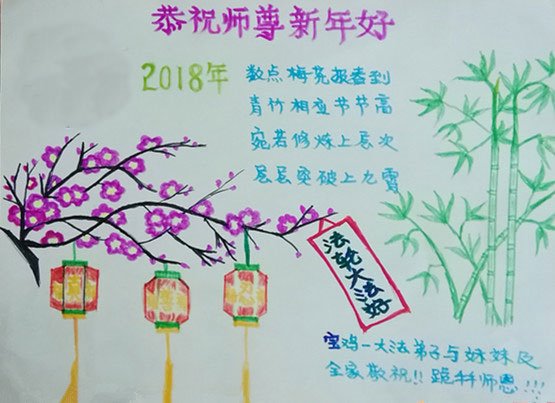 恭祝师尊新年好
2018年
数点梅亮报春到
青竹相连节节高
宛若修炼上层次
层层突破上九霄
法轮大法好
宝鸡一大法弟子与妹妹及
全家敬祝!! 跪拜师恩!!!